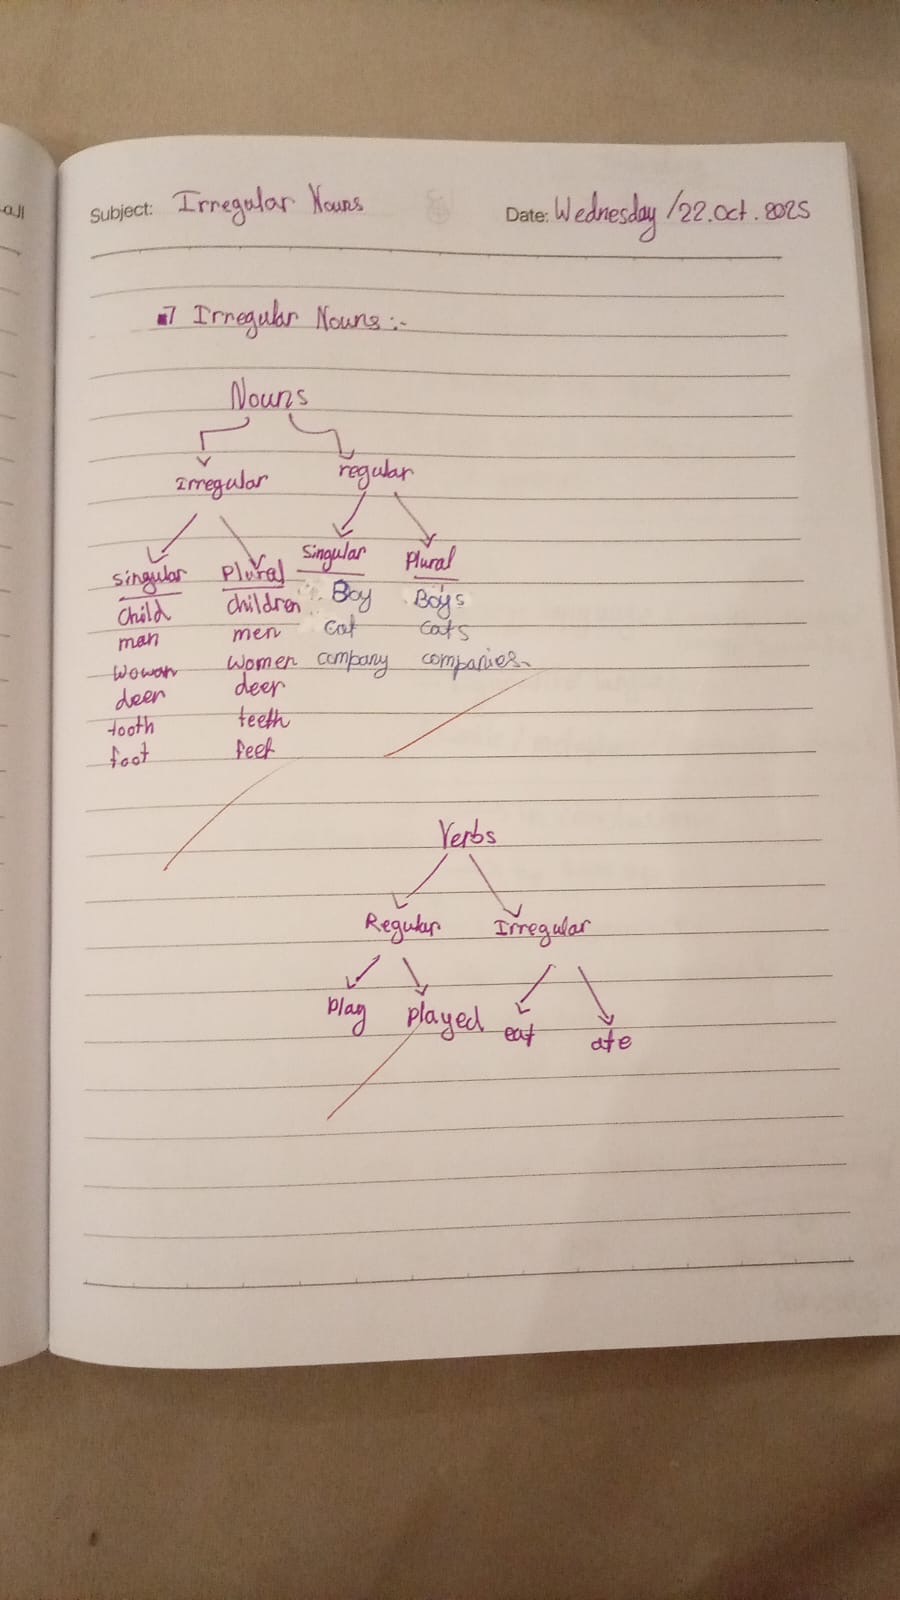 Subject: Irregular Nouns
Date: Wednesday /22.Oct.2025
Irregular Nouns :-
Nouns
Irregular regular
Singular Plural Singular Plural
Child children Boy Boys
man men cat cats
Wowan Women company companies
deer deer
tooth teeth
foot feet
Verbs
Regular Irregular
Play Played eat ate